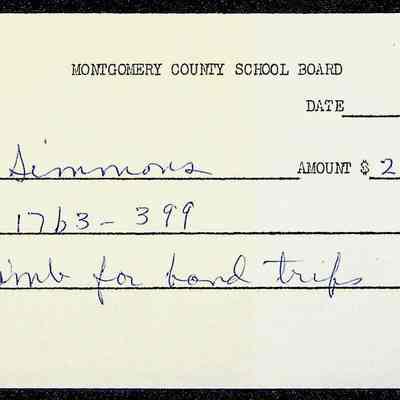 MONTGOMERY COUNTY SCHOOL BOARD
DATE
Simmons AMOUNT $ 2
1763-399
for band trips